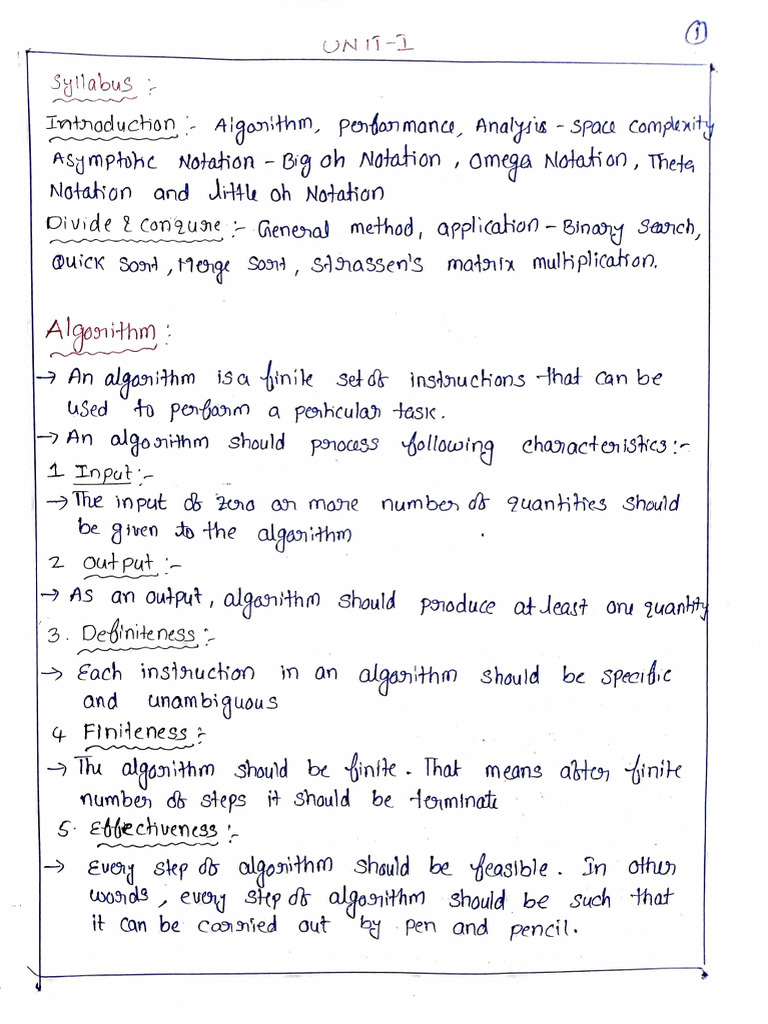 1
UNIT-I
Syllabus :-
Introduction :- Algorithm, Performance, Analysis - Space Complexity
Asymptotic Notation - Big oh Notation, Omega Notation, Theta
Notation and little oh Notation
Divide & Conqure :- General method, application - Binary Search,
Quick Sort, Merge Sort, Strassen's matrix multiplication.
Algorithm :
→ An algorithm is a finite set of instructions that can be
used to perform a perticular task.
→ An algorithm should process following characteristics :-
1 Input :-
→ The input of zero or more number of quantities should
be given to the algorithm
2 Output :-
→ As an output, algorithm should produce at least one quantity
3. Definiteness :-
→ Each instruction in an algorithm should be specific
and unambiguous
4 Finiteness :-
→ The algorithm should be finite. That means after finite
number of steps it should be terminate
5. Effectiveness :-
→ Every step of algorithm should be feasible. In other
words, every step of algorithm should be such that
it can be carried out by pen and pencil.